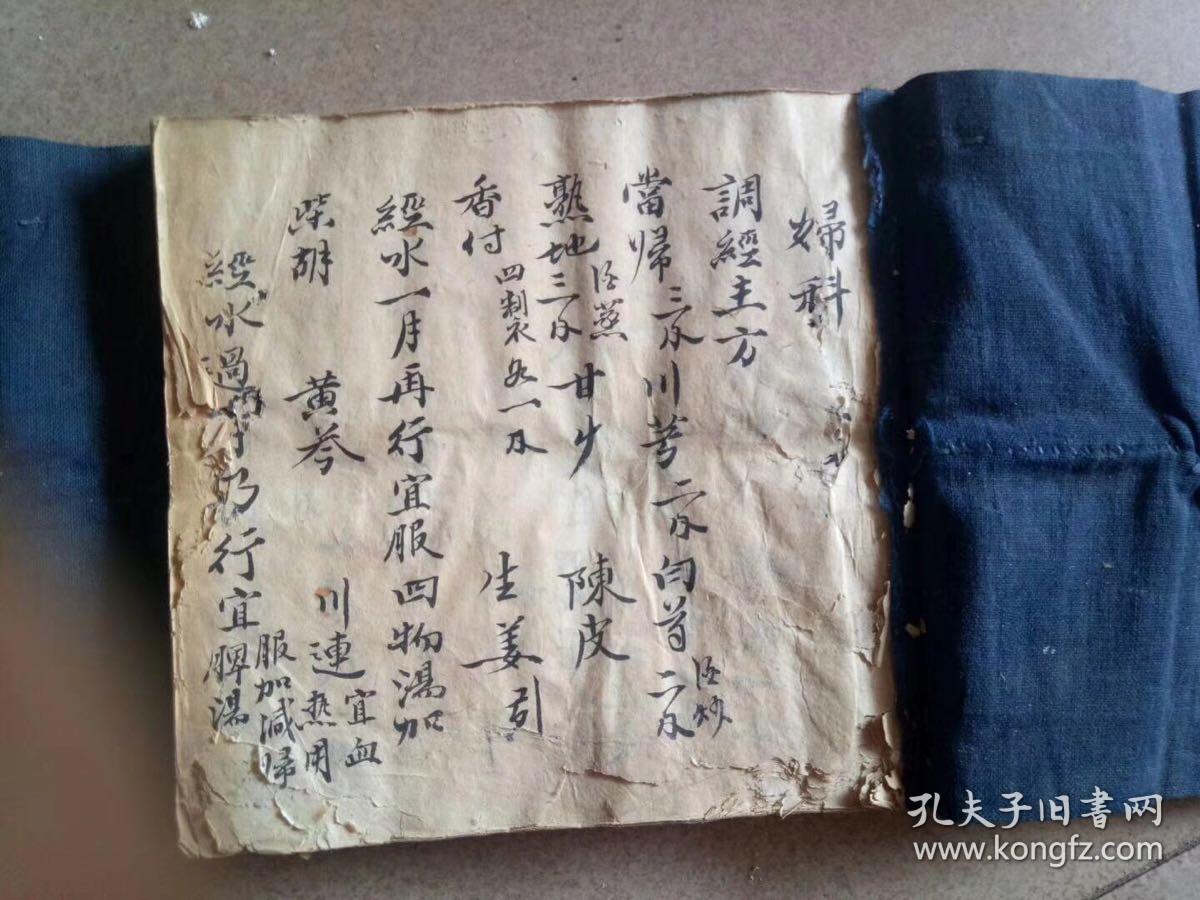 婦科
調經主方
當歸三 川芎二 白芍二 炒
熟地三 蒸 甘少 陳皮
香付四製 一 生姜引
經水一月再行宜服四物湯加
柴胡 黃芩 川連宜血熱用
經水過 仍行宜服加減歸脾湯
孔夫子旧書网
www.kongfz.com